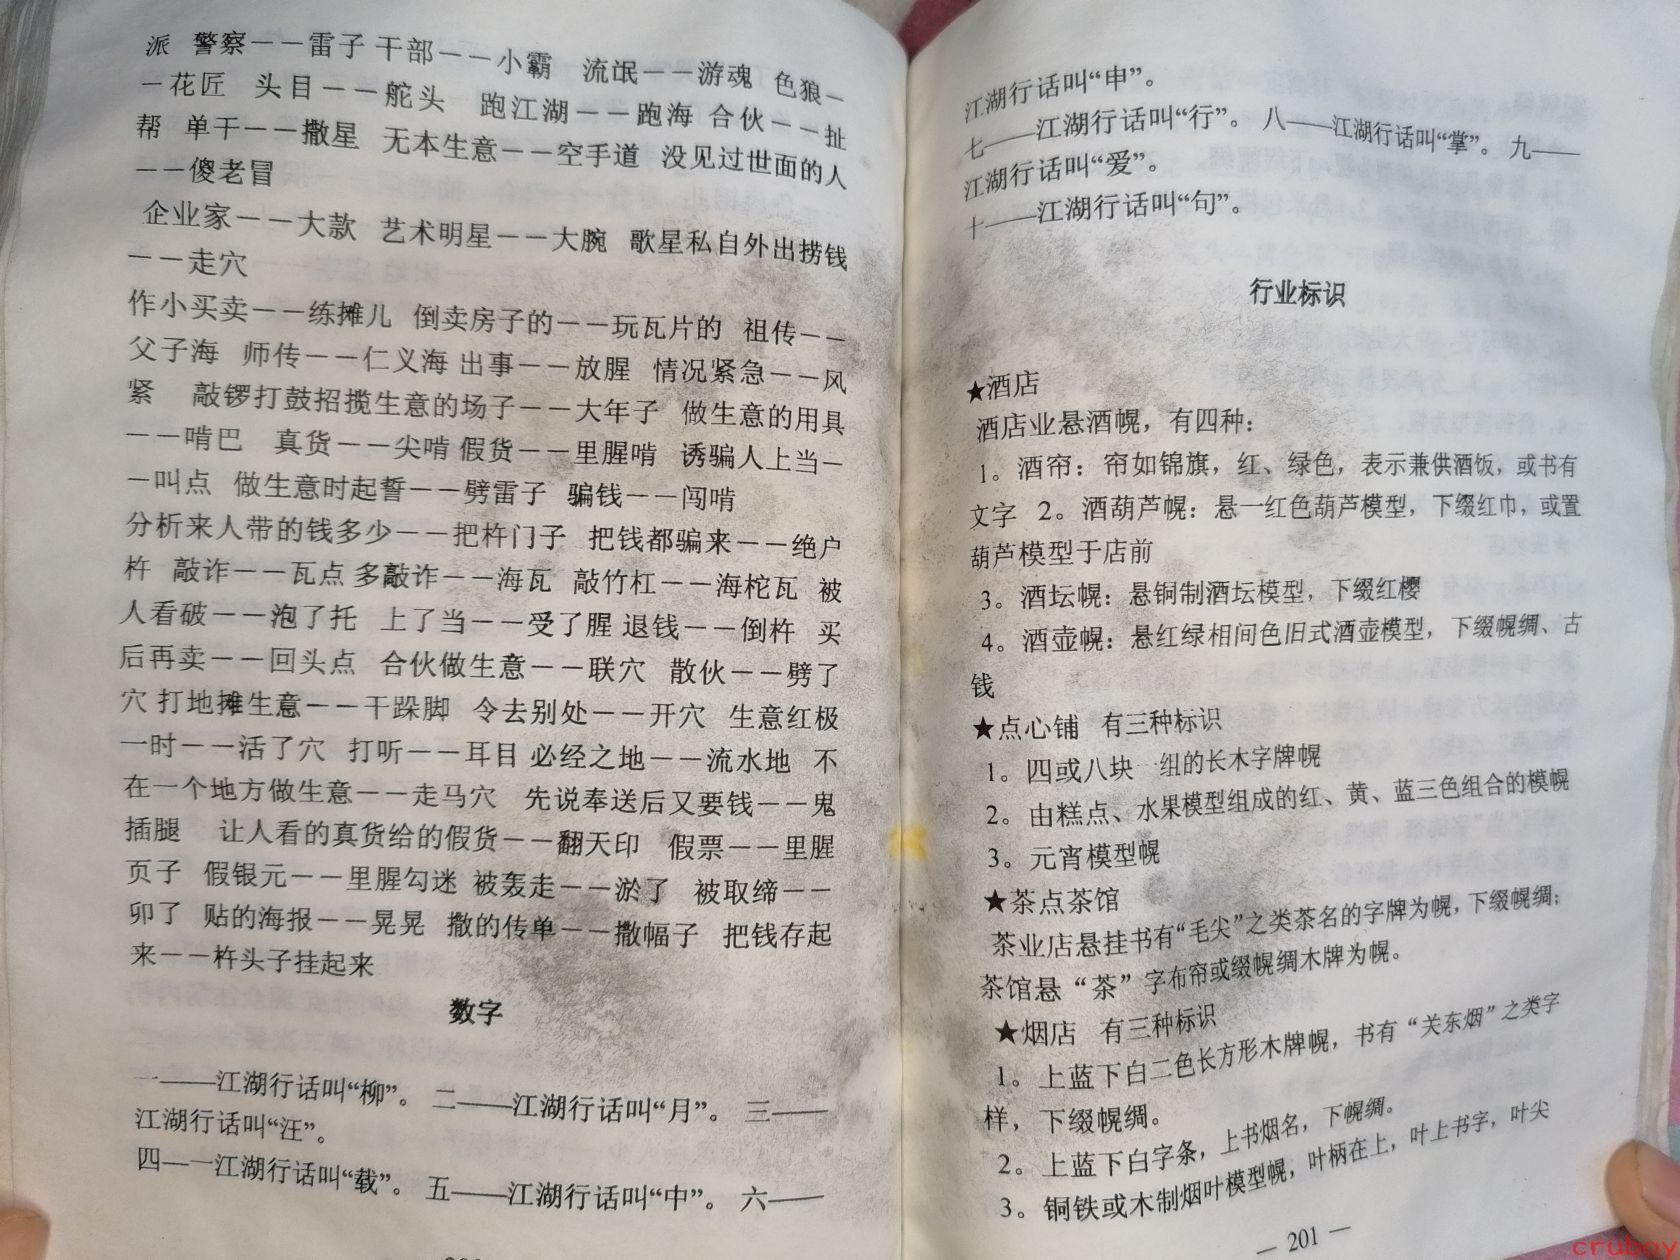 派 警察——雷子 干部——小霸 流氓——游魂 色狼—
—花匠 头目——舵头 跑江湖——跑海 合伙——扯
帮 单干——撒星 无本生意——空手道 没见过世面的人
——傻老冒
企业家——大款 艺术明星——大腕 歌星私自外出捞钱
——走穴
作小买卖——练摊儿 倒卖房子的——玩瓦片的 祖传——
父子海 师传——仁义海 出事——放腥 情况紧急——风
紧 敲锣打鼓招揽生意的场子——大年子 做生意的用具
——啃巴 真货——尖啃 假货——里腥啃 诱骗人上当—
—叫点 做生意时起誓——劈雷子 骗钱——闯啃
分析来人带的钱多少——把杵门子 把钱都骗来——绝户
杵 敲诈——瓦点 多敲诈——海瓦 敲竹杠——海柁瓦 被
人看破——泡了托 上了当——受了腥 退钱——倒杵 买
后再卖——回头点 合伙做生意——联穴 散伙——劈了
穴 打地摊生意——干跺脚 令去别处——开穴 生意红极
一时——活了穴 打听——耳目 必经之地——流水地 不
在一个地方做生意——走马穴 先说奉送后又要钱——鬼
插腿 让人看的真货给的假货——翻天印 假票——里腥
页子 假银元——里腥勾迷 被轰走——淤了 被取缔——
卯了 贴的海报——晃晃 撒的传单——撒幅子 把钱存起
来——杵头子挂起来
数字
一——江湖行话叫“柳”。 二——江湖行话叫“月”。 三——
江湖行话叫“汪”。
四—一江湖行话叫“载”。 五——江湖行话叫“中”。 六——
江湖行话叫“申”。
七——江湖行话叫“行”。 八——江湖行话叫“掌”。 九——
江湖行话叫“爱”。
十——江湖行话叫“句”。
行业标识
★酒店
酒店业悬酒幌，有四种：
1。酒帘：帘如锦旗，红、绿色，表示兼供酒饭，或书有
文字 2。酒葫芦幌：悬一红色葫芦模型，下缀红巾，或置
葫芦模型于店前
3。酒坛幌：悬铜制酒坛模型，下缀红樱
4。酒壶幌：悬红绿相间色旧式酒壶模型，下缀幌绸、古
钱
★点心铺 有三种标识
1。四或八块 组的长木字牌幌
2。由糕点、水果模型组成的红、黄、蓝三色组合的模幌
3。元宵模型幌
★茶点茶馆
茶业店悬挂书有“毛尖”之类茶名的字牌为幌，下缀幌绸；
茶馆悬“茶”字布帘或缀幌绸木牌为幌。
★烟店 有三种标识
1。上蓝下白二色长方形木牌幌，书有“关东烟”之类字
样，下缀幌绸。
2。上蓝下白字条，上书烟名，下幌绸。
3。铜铁或木制烟叶模型幌，叶柄在上，叶上书字，叶尖
— 201 —
cruboy